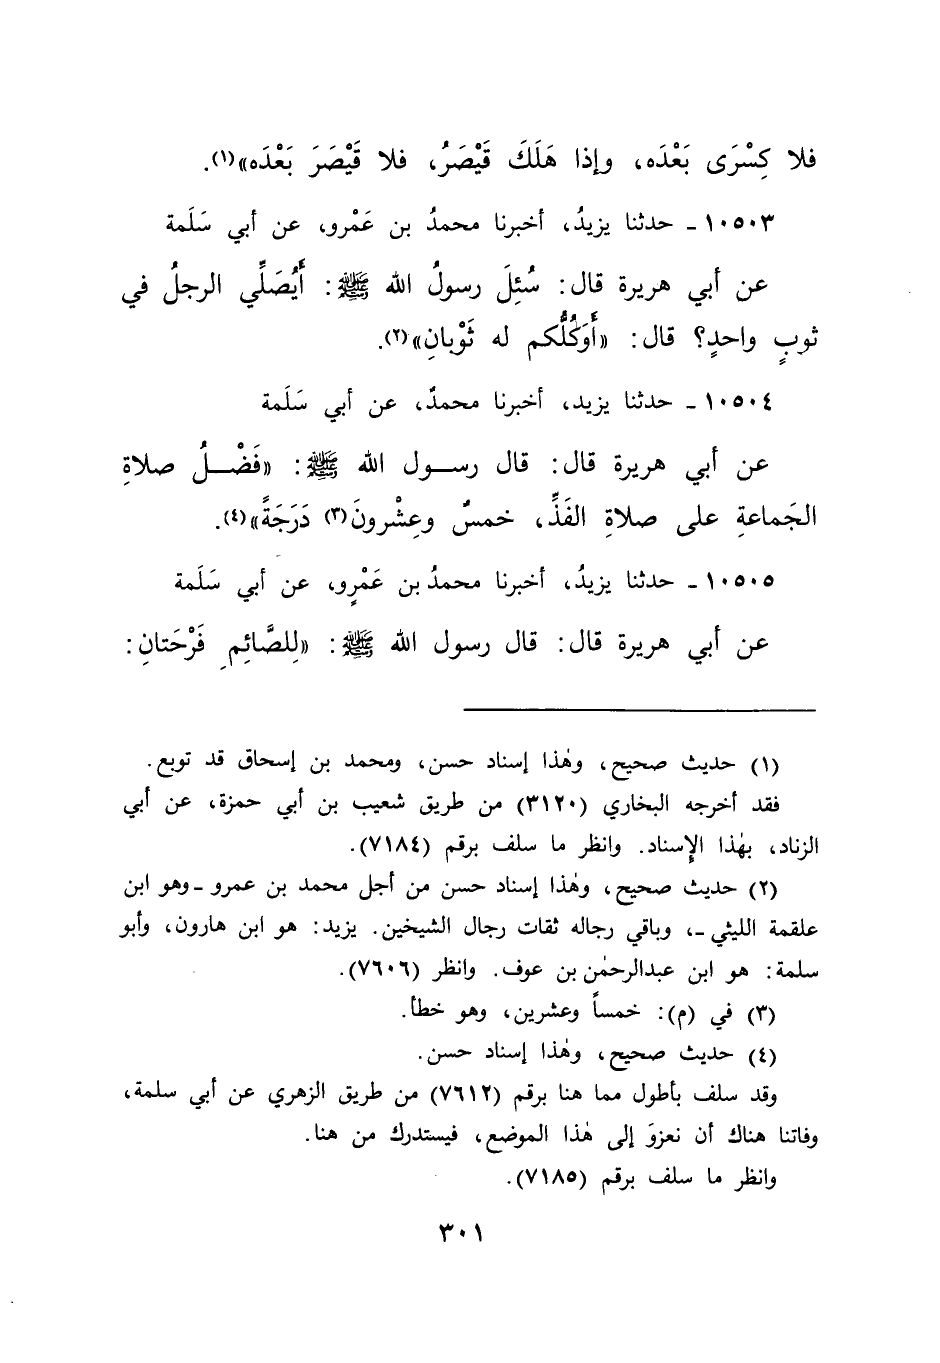 فلا كِسْرَى بَعْدَه، وإذا هَلَكَ قَيْصَرُ، فلا قَيْصَرَ بَعْدَه»(١).
١٠٥٠٣ - حدثنا يزيدُ، أخبرنا محمدُ بن عَمْرو، عن أبي سَلَمة
عن أبي هريرة قال: سُئِلَ رسولُ الله ﷺ: أَيُصَلِّي الرجلُ في
ثوبٍ واحدٍ؟ قال: «أَوَكُلُّكم له ثَوْبانِ»(٢).
١٠٥٠٤ - حدثنا يزيد، أخبرنا محمدٌ، عن أبي سَلَمة
عن أبي هريرة قال: قال رســول الله ﷺ: «فَضْــلُ صلاةِ
الجَماعةِ على صلاةِ الفَذِّ، خمسٌ وعِشْرونَ(٣) دَرَجَةً»(٤).
١٠٥٠٥ - حدثنا يزيدُ، أخبرنا محمدُ بن عَمْرٍو، عن أبي سَلَمة
عن أبي هريرة قال: قال رسول الله ﷺ: «لِلصَّائِمِ فَرْحَتانِ:
(١) حديث صحيح، وهٰذا إسناد حسن، ومحمد بن إسحاق قد توبع.
فقد أخرجه البخاري (٣١٢٠) من طريق شعيب بن أبي حمزة، عن أبي
الزناد، بهٰذا الإسناد. وانظر ما سلف برقم (٧١٨٤).
(٢) حديث صحيح، وهٰذا إسناد حسن من أجل محمد بن عمرو -وهو ابن
علقمة الليثي-، وباقي رجاله ثقات رجال الشيخين. يزيد: هو ابن هارون، وأبو
سلمة: هو ابن عبدالرحمٰن بن عوف. وانظر (٧٦٠٦).
(٣) في (م): خمساً وعشرين، وهو خطأ.
(٤) حديث صحيح، وهٰذا إسناد حسن.
وقد سلف بأطول مما هنا برقم (٧٦١٢) من طريق الزهري عن أبي سلمة،
وفاتنا هناك أن نعزوَ إلى هٰذا الموضع، فيستدرك من هنا.
وانظر ما سلف برقم (٧١٨٥).
٣٠١